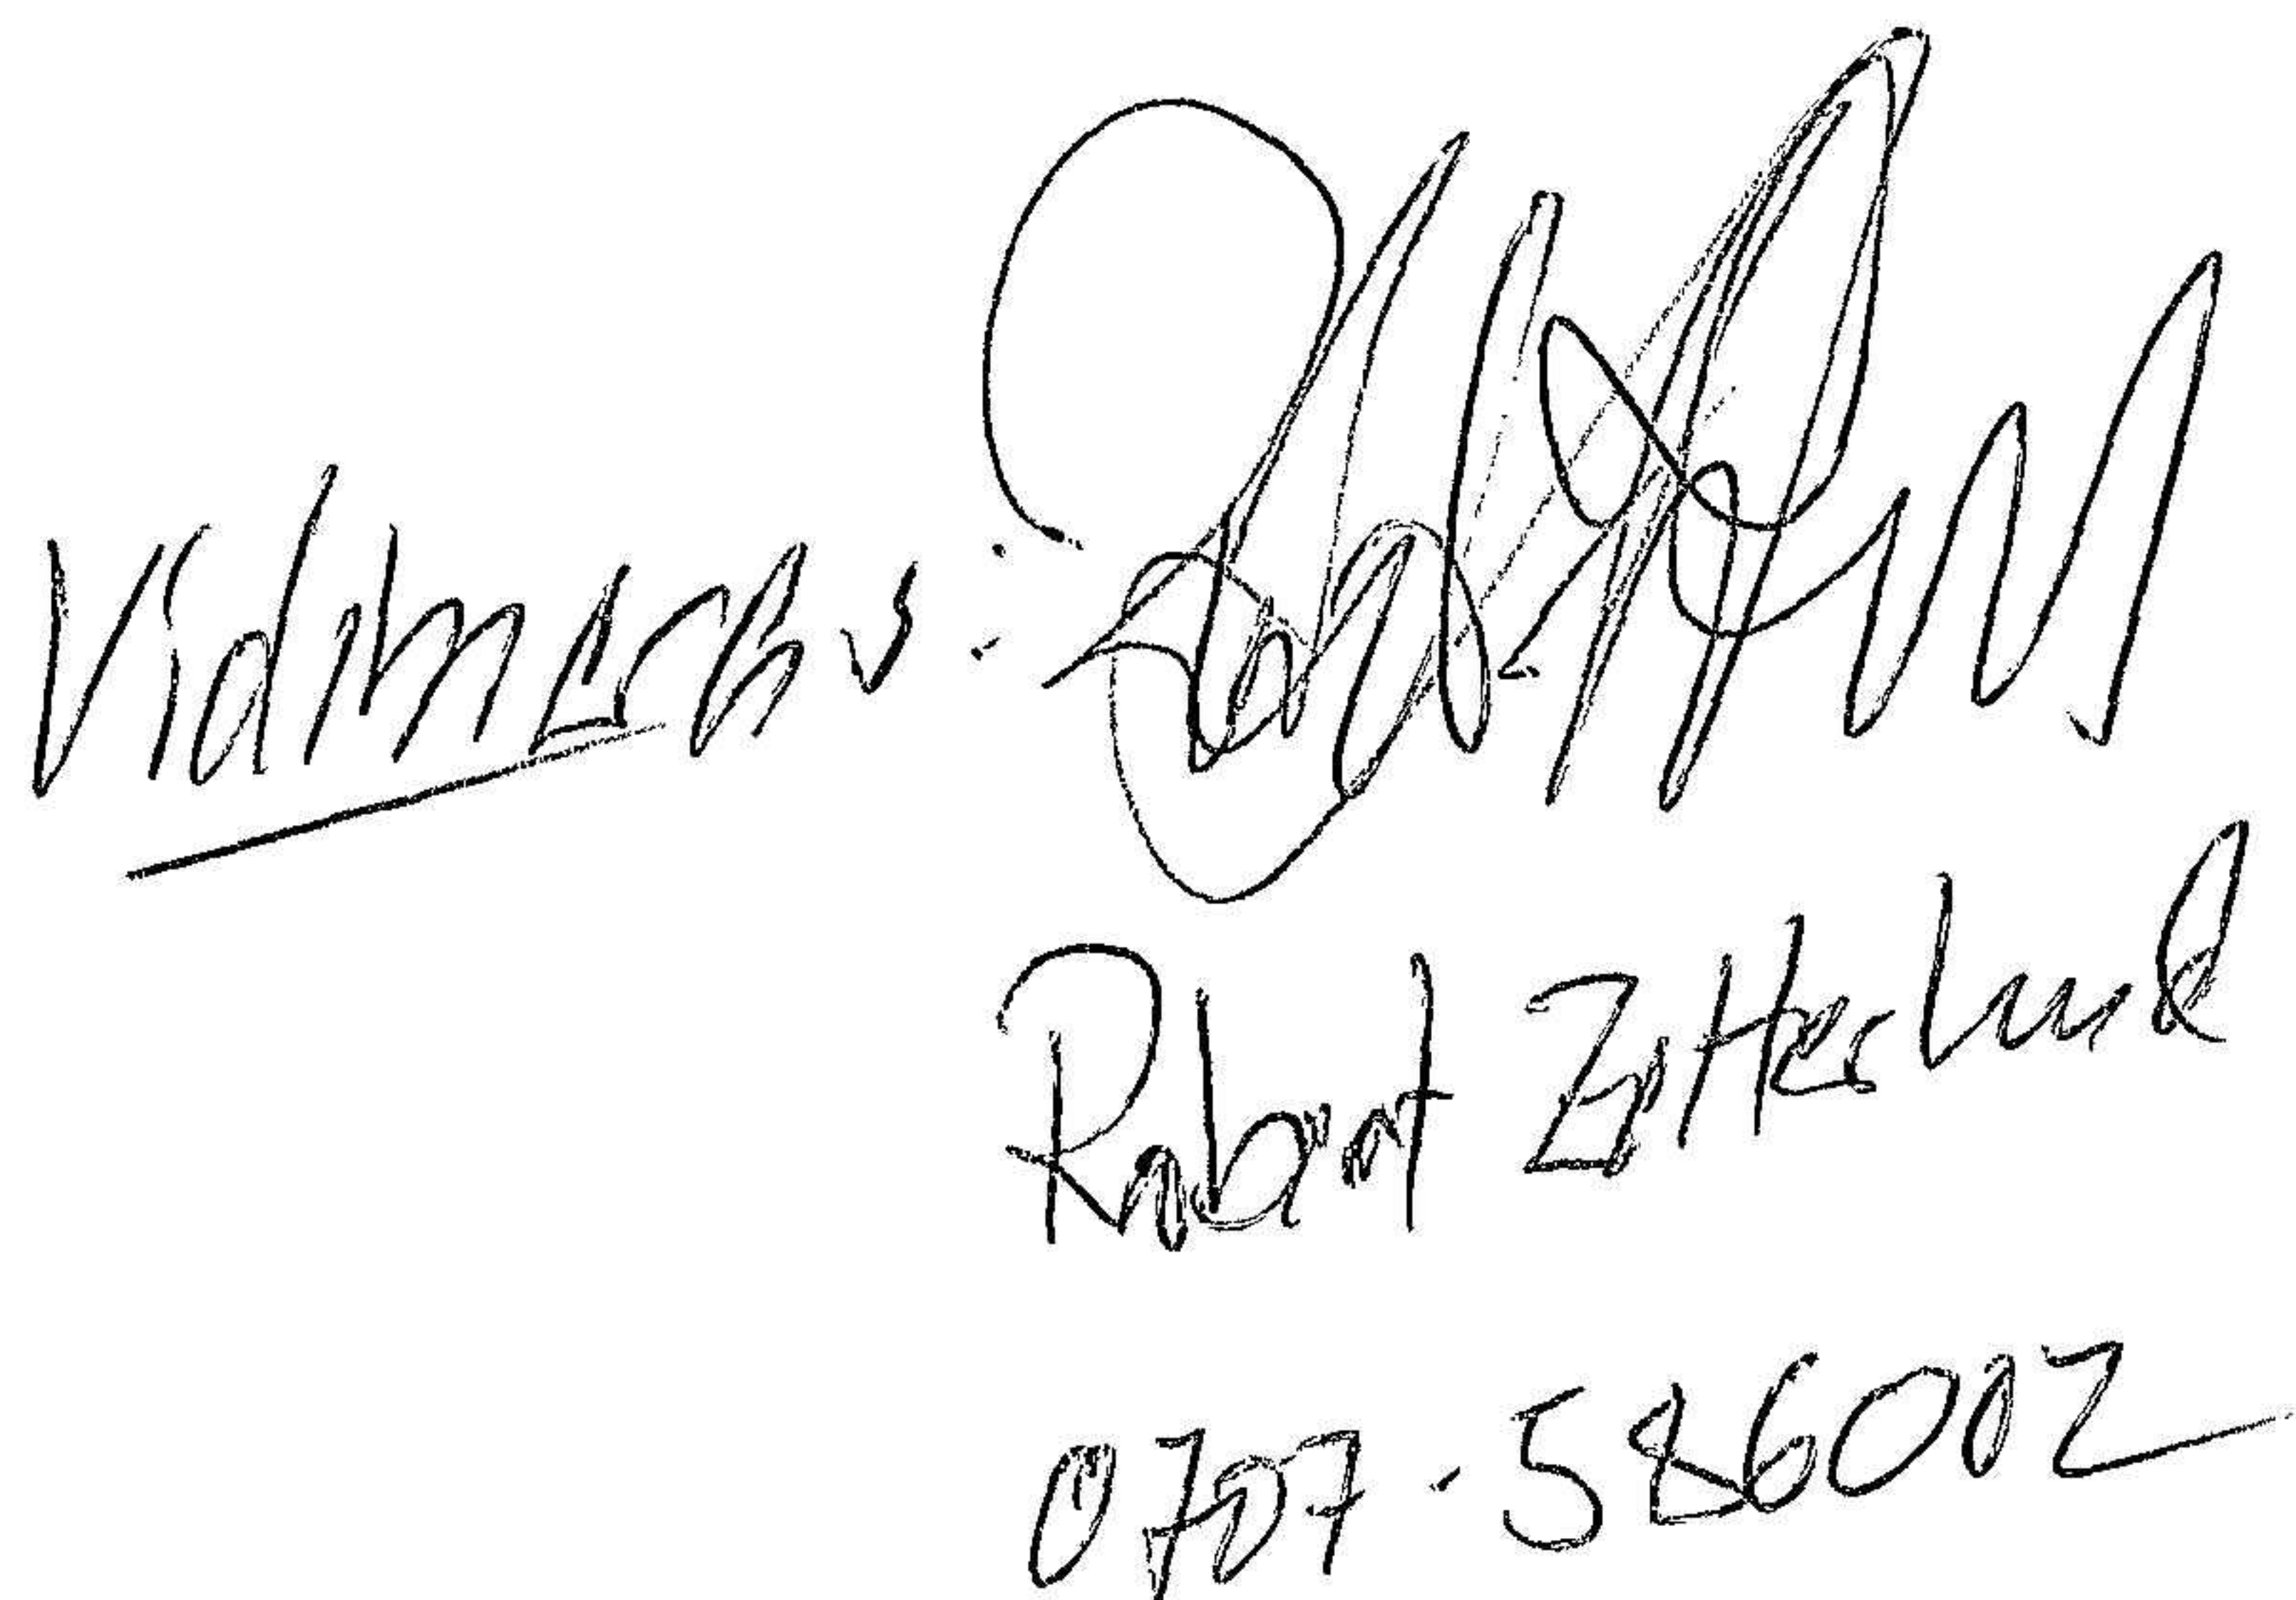 Vidimeras:
Robert Zetterlund
0707-586002